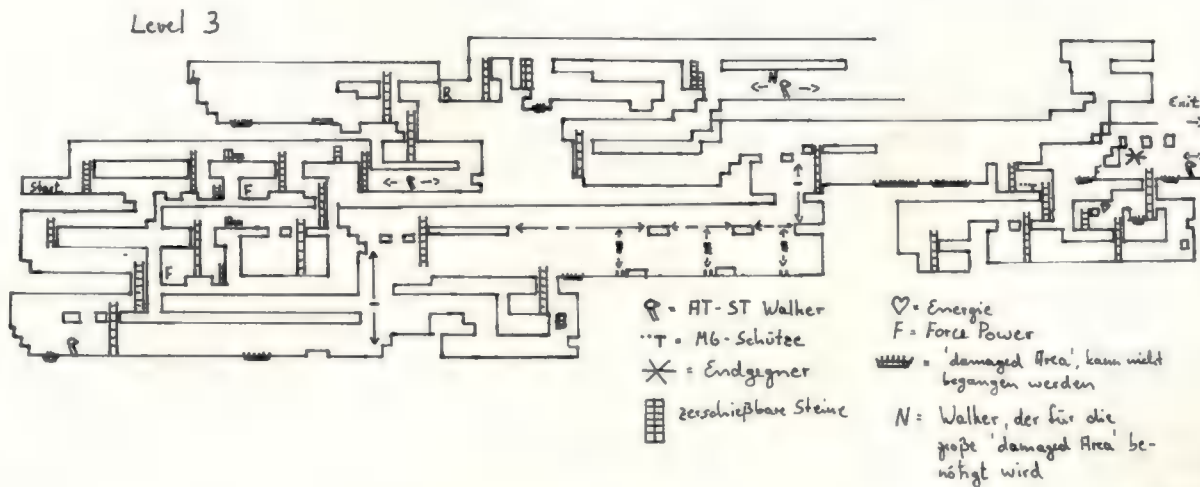 Level 3
Exit
Start
N
R
F
F
= AT-ST Walker
= MG-Schütze
= Endgegner
zerschießbare Steine
♡ = Energie
F = Force Power
= 'damaged Area', kann nicht
begangen werden
N = Walker, der für die
große 'damaged Area' be-
nötigt wird